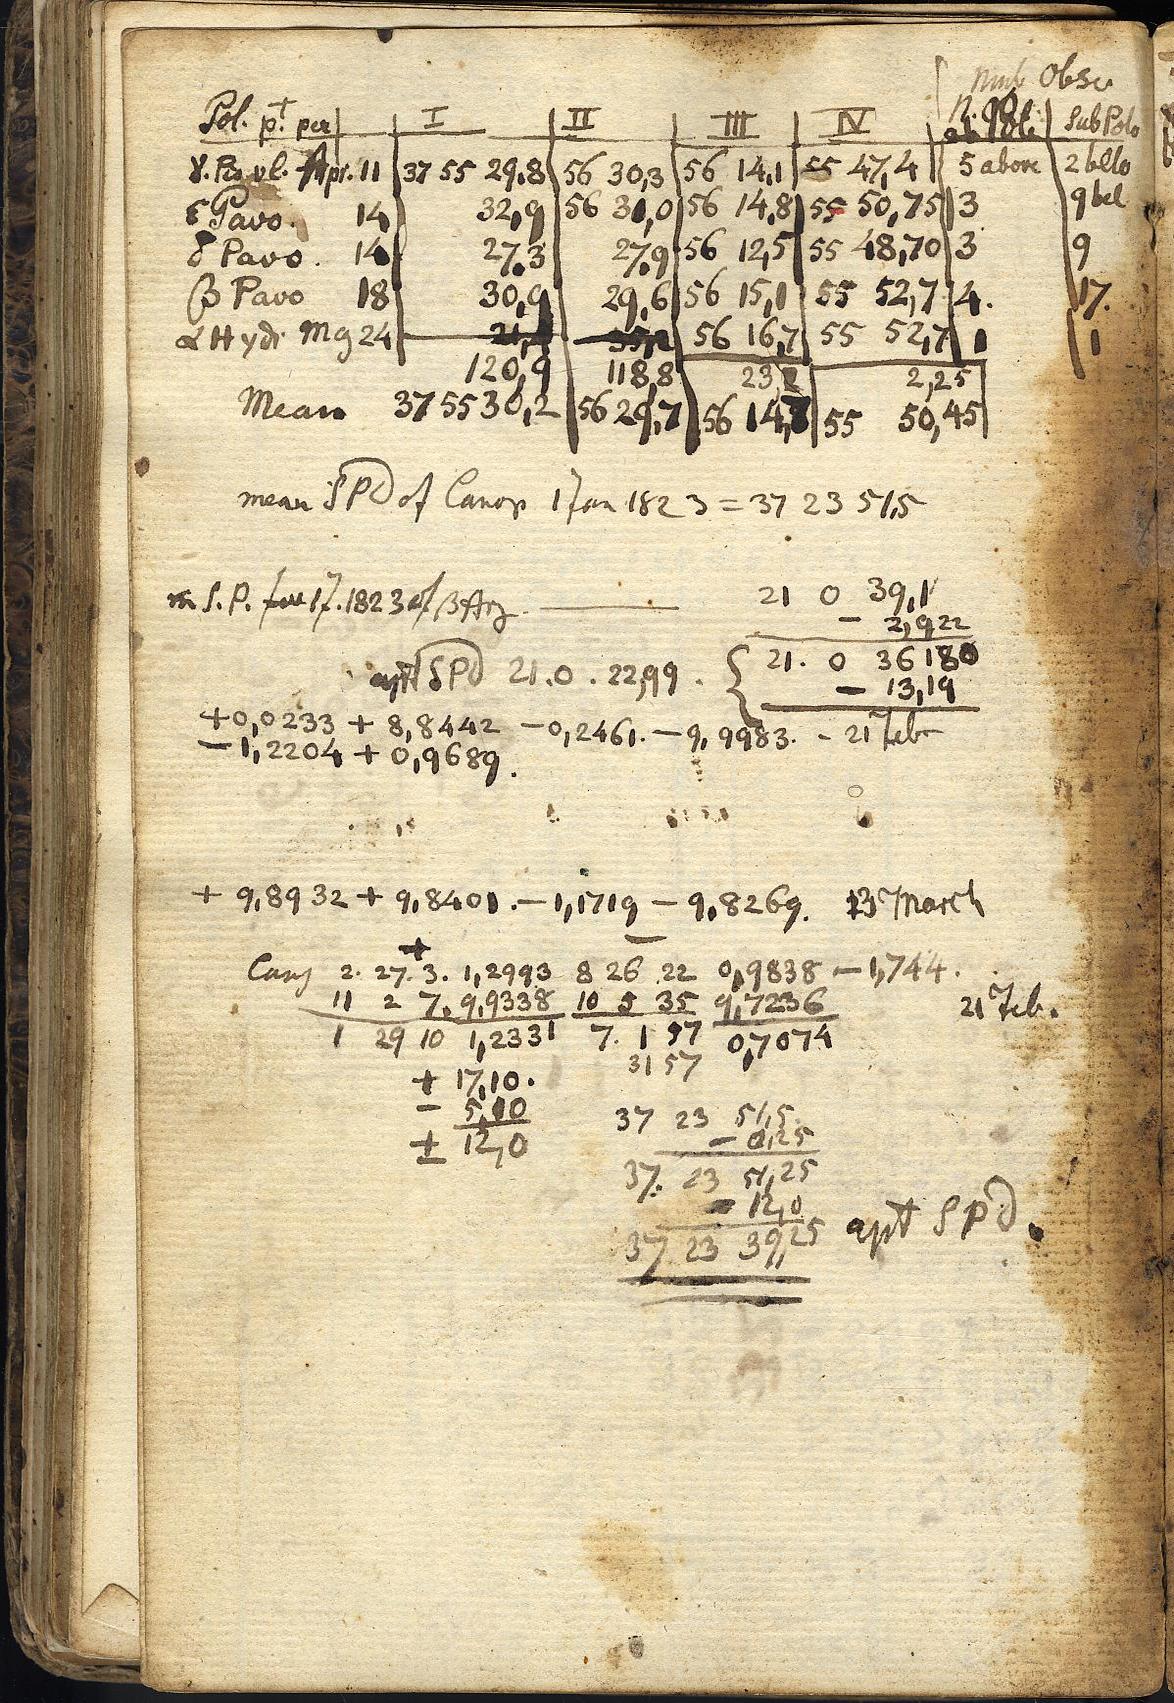 Numb Obse
Pol. pt. per I II III IV Sub Polo
γ. Pavo Apr. 11 37 55 29,8 56 30,3 56 14,1 55 47,4 5 above 2 bello
ε Pavo 14 32,9 56 31,0 56 14,8 55 50,75 3 9 bel
δ Pavo. 14 27,3 27,9 56 12,5 55 48,70 3 9
β Pavo 18 30,9 29,6 56 15,1 55 52,7 4. 17.
α Hydr 24 56 16,7 55 52,7 1 1
120,9 118,8 23,2 2,25
Mean 37 55 30,2 56 29,7 56 14,7 55 50,45
mean SPD of Canop 1 Jan 1823 = 37 23 51,5
S.P. Jan 1. 1823 of β Arg 21 0 39,1
- 2,922
appt SPD 21.0.22,99. { 21. 0 36180
- 13,19
+0,0233 + 8,8442 - 0,2461. - 9,9983. - 21 Feb
- 1,2204 + 0,9689.
+ 9,8932 + 9,8401. - 1,1719 - 9,8269. 13 March
+
Canop 2. 27. 3. 1,2993 8 26 22 0,9838 - 1,744.
11 2 7. 9,9338 10 5 35 9,7236 21 Feb.
1 29 10 1,2331 7. 1 57 0,7074
+ 17,10. 31 57
- 5,10 37 23 51,5
± 12,0 - 0,25
37. 23 51,25
- 12,0
37 23 39,25 apt SPD.